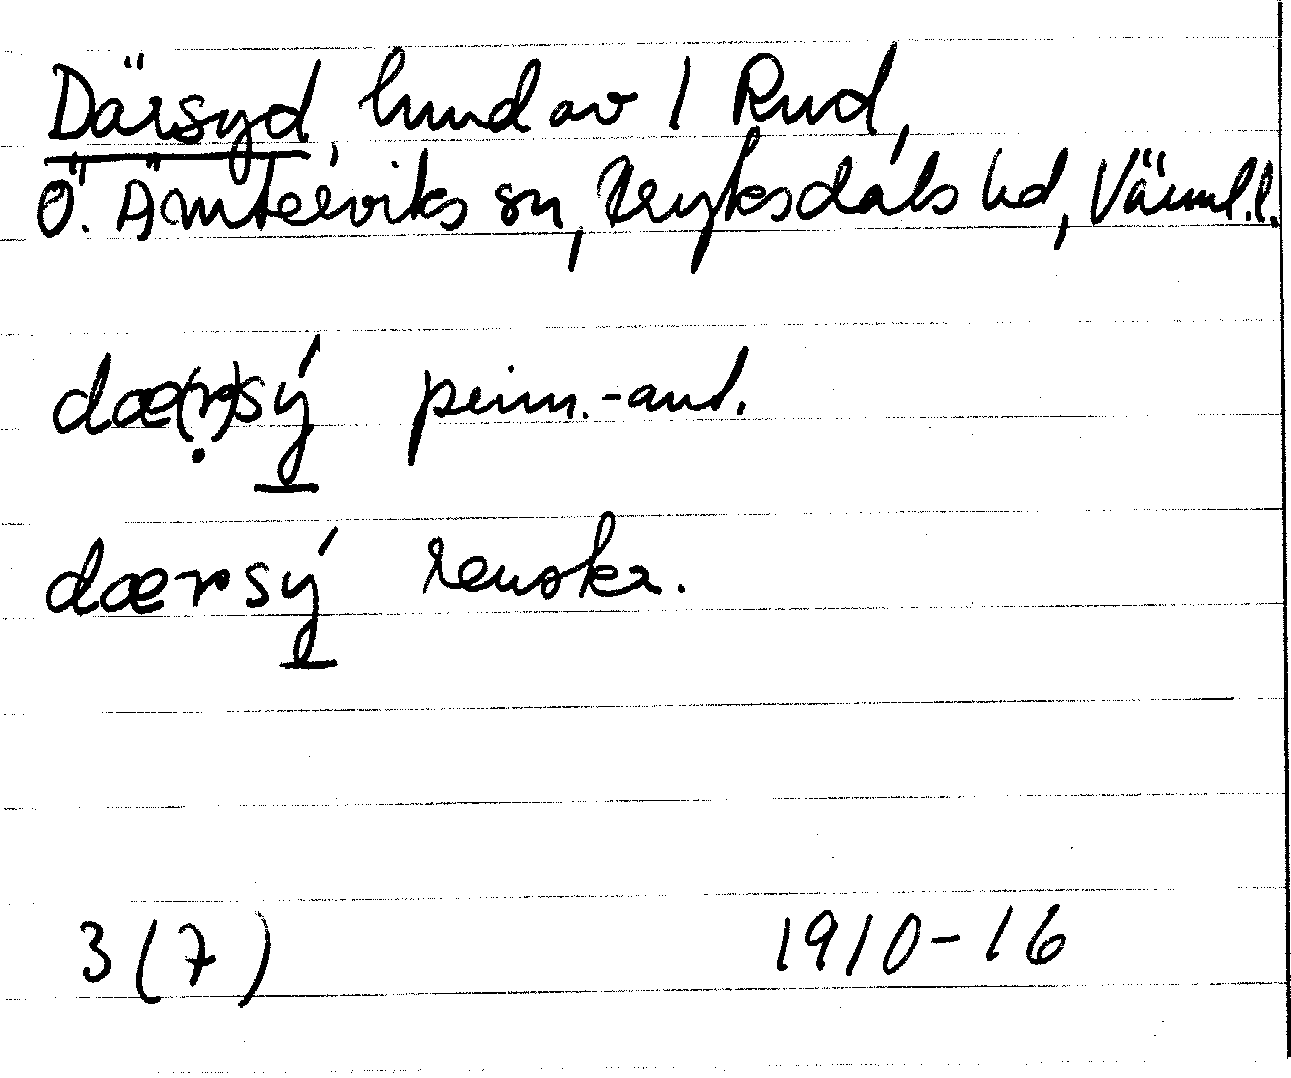 Därsyd, hmd av 1 Rud,
Ö. Ämterviks sn, Fryksdals hd, Värml.l.
dæ(r)sý prim.-ant.
dærsý renskr.
3 (7) 1910-16